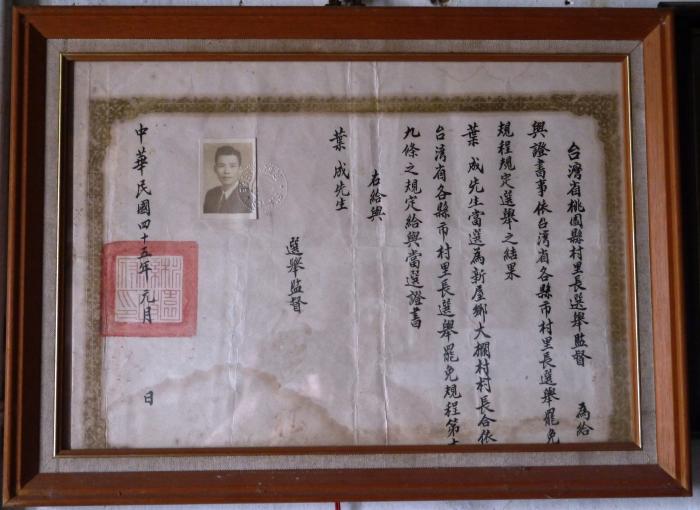 台灣省桃園縣村里長選舉監督　為給
與證書事依台灣省各縣市村里長選舉罷免
規程規定選舉之結果
葉成先生當選為新屋鄉大欄村村長合依
台灣省各縣市村里長選舉罷免規程第十
九條之規定給與當選證書
右給與
葉成先生
選舉監督
中華民國四十五年元月　日